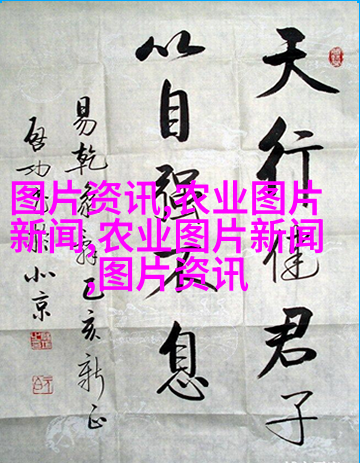 天行健君子
以自强不息
易乾象辞己亥新正
啓功书於北京
图片资讯,农业图片
新闻,农业图片新闻
,图片资讯